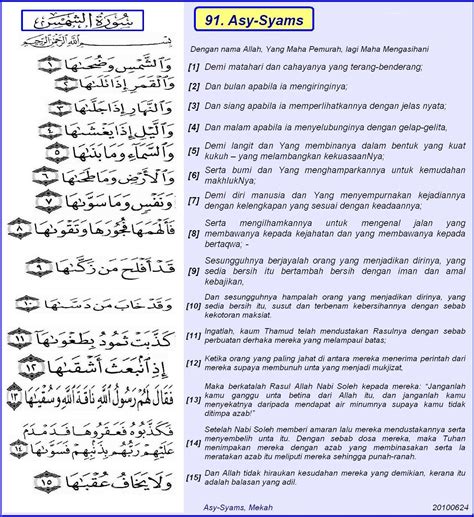 سُورَةُ الشَّمْسِ
بِسْمِ اللَّهِ الرَّحْمَٰنِ الرَّحِيمِ
وَالشَّمْسِ وَضُحَاهَا ﴿١﴾
وَالْقَمَرِ إِذَا تَلَاهَا ﴿٢﴾
وَالنَّهَارِ إِذَا جَلَّاهَا ﴿٣﴾
وَاللَّيْلِ إِذَا يَغْشَاهَا ﴿٤﴾
وَالسَّمَاءِ وَمَا بَنَاهَا ﴿٥﴾
وَالْأَرْضِ وَمَا طَحَاهَا ﴿٦﴾
وَنَفْسٍ وَمَا سَوَّاهَا ﴿٧﴾
فَأَلْهَمَهَا فُجُورَهَا وَتَقْوَاهَا ﴿٨﴾
قَدْ أَفْلَحَ مَن زَكَّاهَا ﴿٩﴾
وَقَدْ خَابَ مَن دَسَّاهَا ﴿١٠﴾
كَذَّبَتْ ثَمُودُ بِطَغْوَاهَا ﴿١١﴾
إِذِ انبَعَثَ أَشْقَاهَا ﴿١٢﴾
فَقَالَ لَهُمْ رَسُولُ اللَّهِ نَاقَةَ اللَّهِ وَسُقْيَاهَا ﴿١٣﴾
فَكَذَّبُوهُ فَعَقَرُوهَا فَدَمْدَمَ
عَلَيْهِمْ رَبُّهُم بِذَنبِهِمْ فَسَوَّاهَا ﴿١٤﴾
وَلَا يَخَافُ عُقْبَاهَا ﴿١٥﴾
91. Asy-Syams
Dengan nama Allah, Yang Maha Pemurah, lagi Maha Mengasihani
[1] Demi matahari dan cahayanya yang terang-benderang;
[2] Dan bulan apabila ia mengiringinya;
[3] Dan siang apabila ia memperlihatkannya dengan jelas nyata;
[4] Dan malam apabila ia menyelubunginya dengan gelap-gelita,
[5] Demi langit dan Yang membinanya dalam bentuk yang kuat
kukuh – yang melambangkan kekuasaanNya;
[6] Serta bumi dan Yang menghamparkannya untuk kemudahan
makhlukNya;
[7] Demi diri manusia dan Yang menyempurnakan kejadiannya
dengan kelengkapan yang sesuai dengan keadaannya;
Serta mengilhamkannya untuk mengenal jalan yang
[8] membawanya kepada kejahatan dan yang membawanya kepada
bertaqwa, -
Sesungguhnya berjayalah orang yang menjadikan dirinya, yang
[9] sedia bersih itu bertambah bersih dengan iman dan amal
kebajikan,
Dan sesungguhnya hampalah orang yang menjadikan dirinya, yang
[10] sedia bersih itu, susut dan terbenam kebersihannya dengan sebab
kekotoran maksiat.
[11] Ingatlah, kaum Thamud telah mendustakan Rasulnya dengan sebab
perbuatan derhaka mereka yang melampaui batas;
[12] Ketika orang yang paling jahat di antara mereka menerima perintah dari
mereka supaya membunuh unta yang menjadi mukjizat,
Maka berkatalah Rasul Allah Nabi Soleh kepada mereka: "Janganlah
[13] kamu ganggu unta betina dari Allah itu, dan janganlah kamu
menyekatnya daripada mendapat air minumnya supaya kamu tidak
ditimpa azab!"
Setelah Nabi Soleh memberi amaran lalu mereka mendustakannya serta
[14] menyembelih unta itu. Dengan sebab dosa mereka, maka Tuhan
menimpakan mereka dengan azab yang membinasakan serta Ia
meratakan azab itu meliputi mereka sehingga punah-ranah.
[15] Dan Allah tidak hiraukan kesudahan mereka yang demikian, kerana itu
adalah balasan yang adil.
Asy-Syams, Mekah 20100624